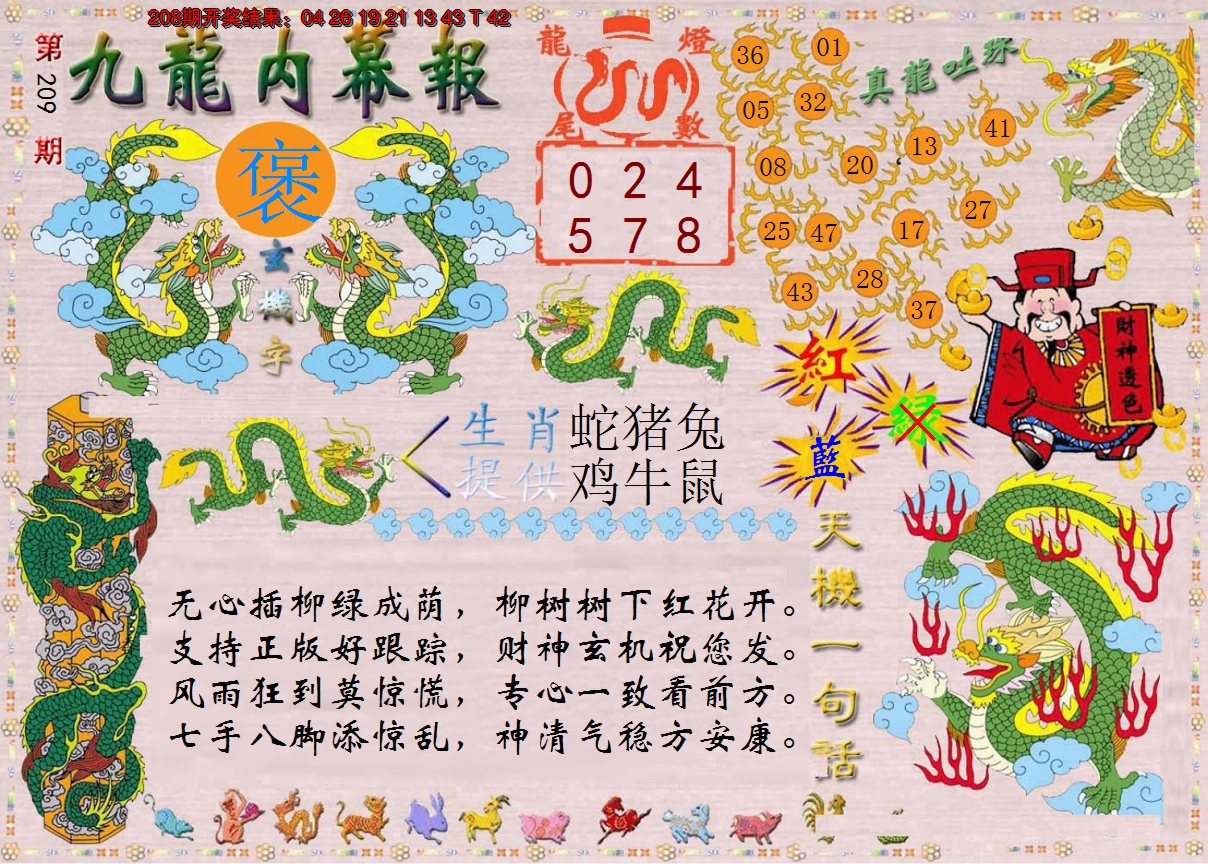 208期开奖结果：04 26 19 21 13 43 T 42
第209期
九龍内幕報
褒
玄機字
龍燈尾數
0 2 4
5 7 8
真龍吐珠
36 01
05 32
08 20 13 41
25 47 17 27
43 28 37
財神透色
紅
绿
藍
生肖提供
蛇猪兔
鸡牛鼠
天機一句話
无心插柳绿成荫，柳树树下红花开。
支持正版好跟踪，财神玄机祝您发。
风雨狂到莫惊慌，专心一致看前方。
七手八脚添惊乱，神清气稳方安康。